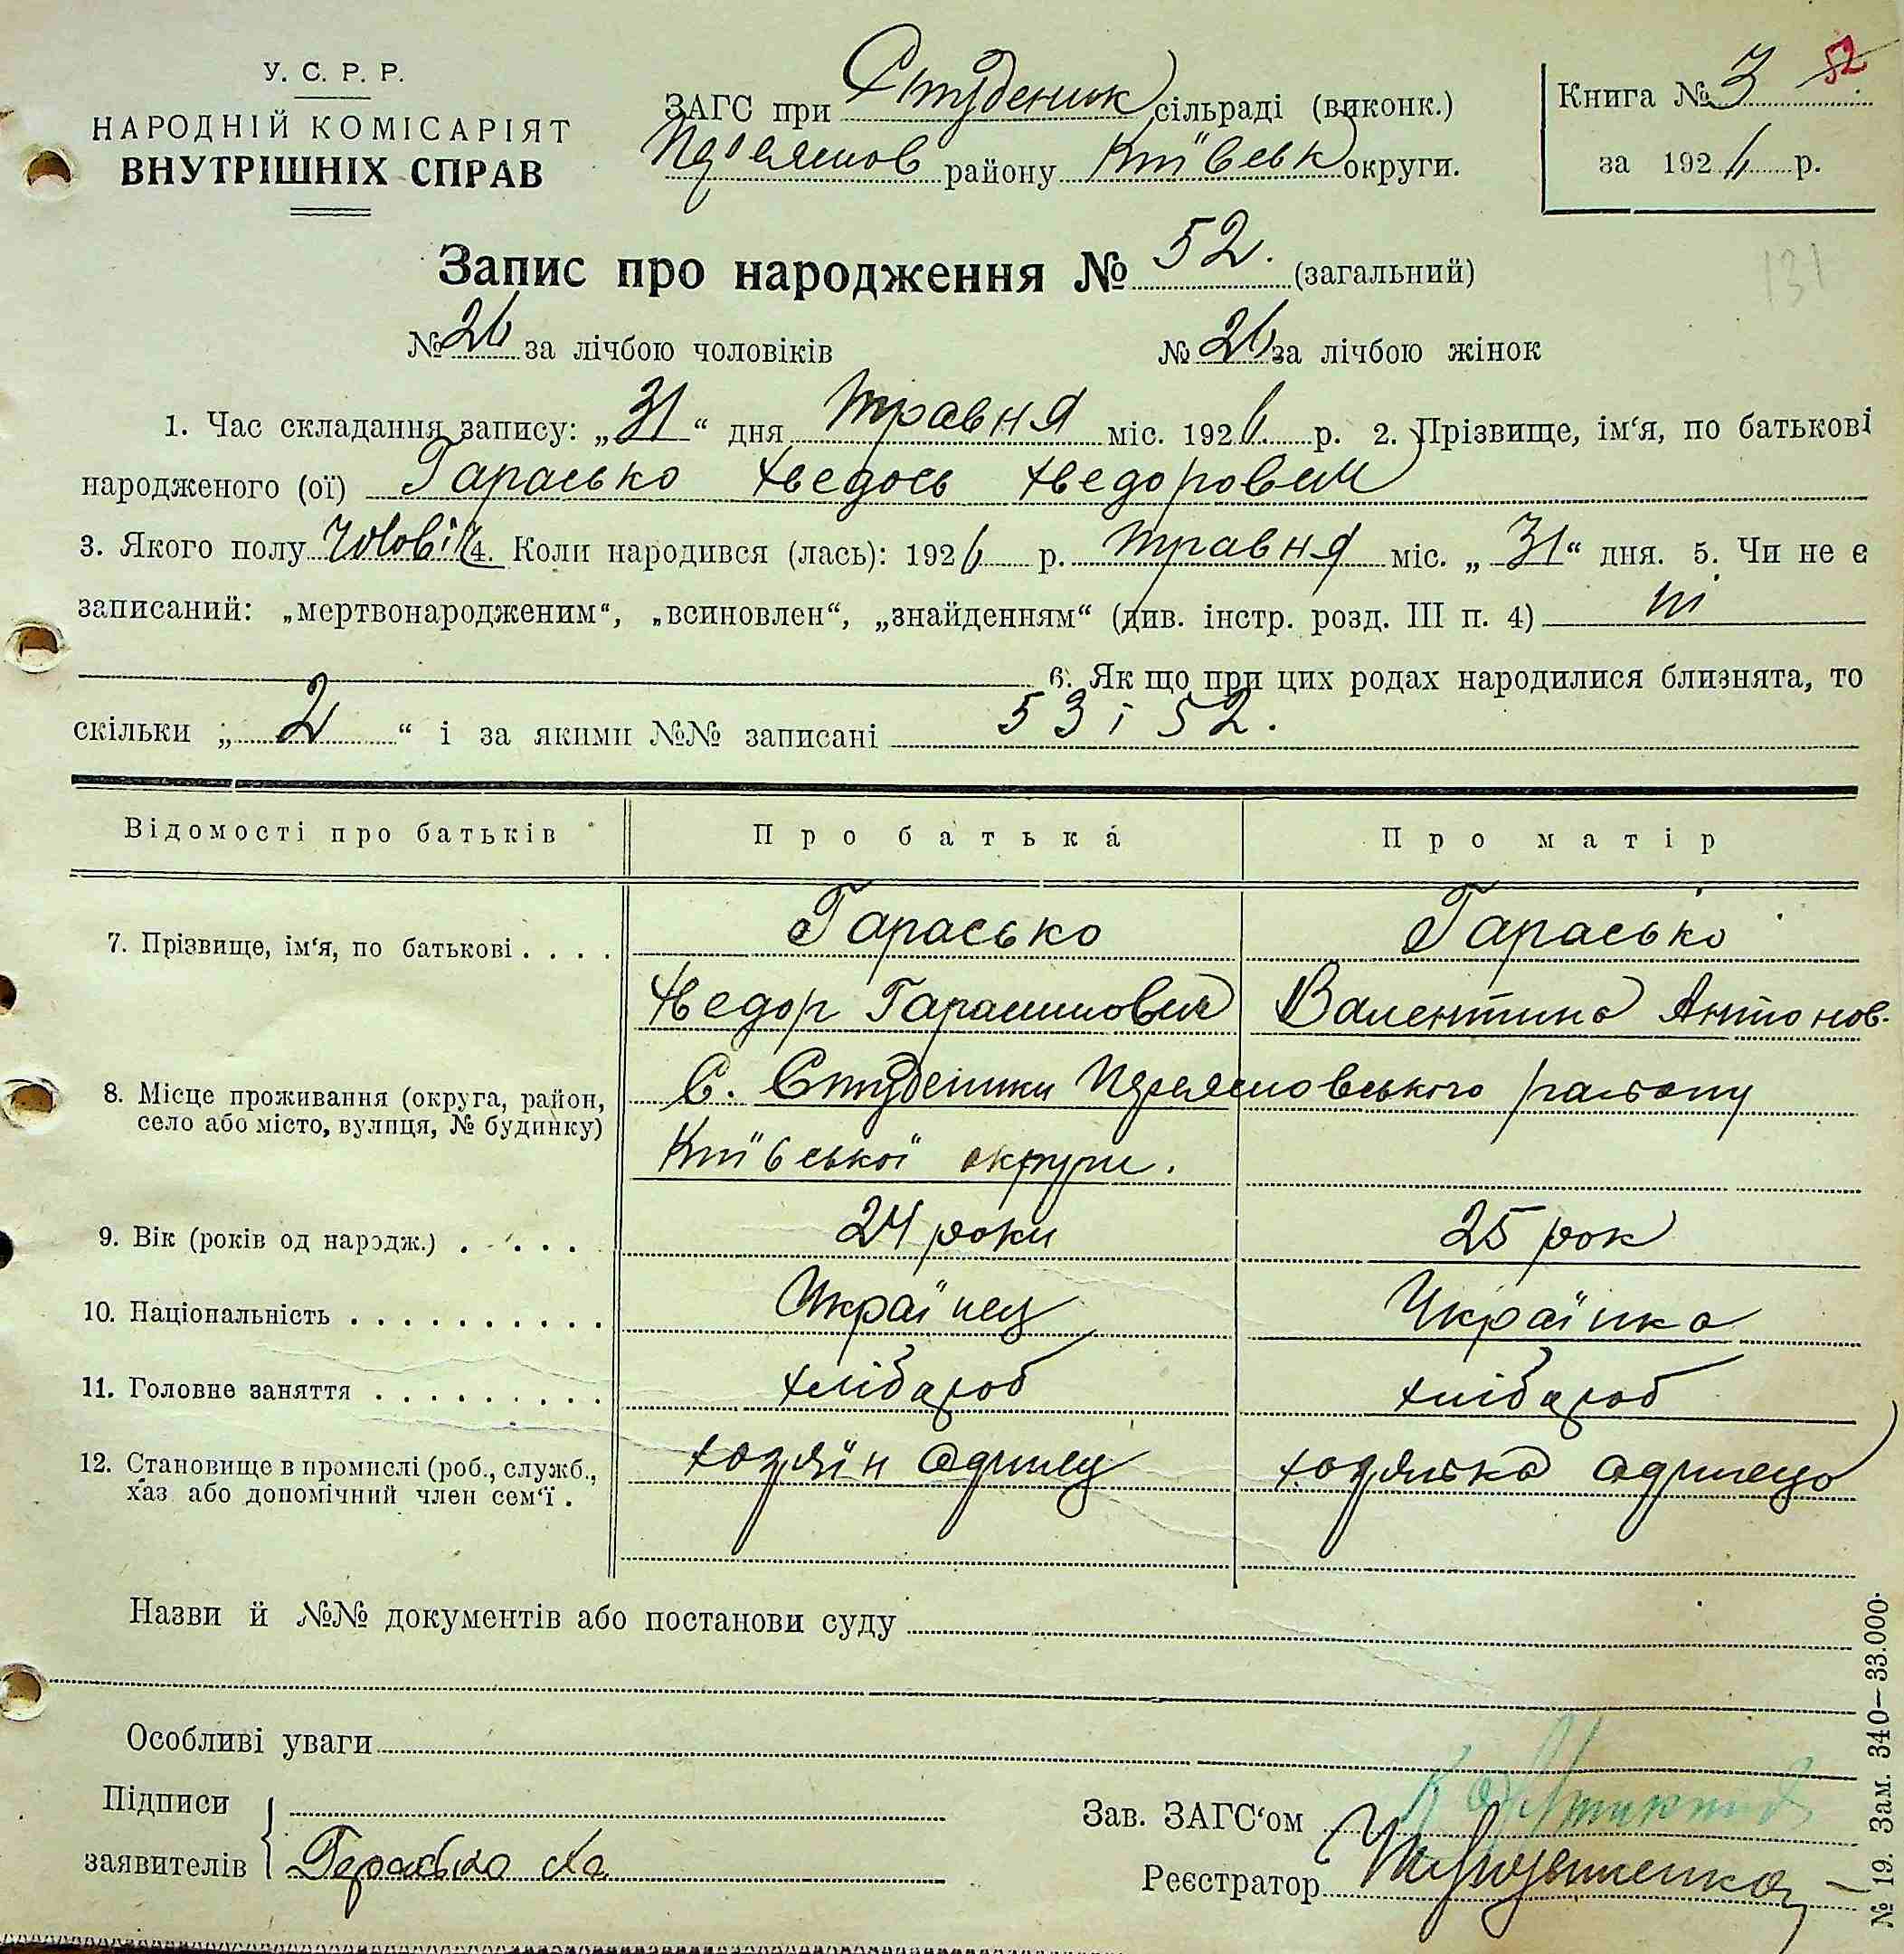 У. С. Р. Р.
НАРОДНІЙ КОМІСАРІЯТ
ВНУТРІШНІХ СПРАВ
ЗАГС при Студеник сільраді (виконк.)
району Київськ округи.
Книга № 3 52
за 1926 р.
131
Запис про народження № 52. (загальний)
№ 26 за лічбою чоловіків № 26 за лічбою жінок
1. Час складання запису: „31“ дня травня міс. 1926 р. 2. Прізвище, ім‘я, по батькові
народженого (ої) Гарасько Хведось Хведорович
3. Якого полу чоловік 4. Коли народився (лась): 1926 р. травня міс. „31“ дня. 5. Чи не є
записаний: „мертвонародженим“, „всиновлен“, „знайденням“ (див. інстр. розд. III п. 4) ні
6. Як що при цих родах народилися близнята, то
скільки „2“ і за якими №№ записані 53 і 52.
Відомості про батьків Про батька Про матір
7. Прізвище, ім‘я, по батькові . . . . Гарасько Гарасько
Хведор Гарасимович Валентина Антонов.
8. Місце проживання (округа, район, С. Студеники Переясловського району
село або місто, вулиця, № будинку)
Київської округи.
9. Вік (років од народж.) . . . . 24 роки 25 рок
10. Національність . . . . . . . . . . Українец Українка
11. Головне заняття . . . . . . . . . хлібароб хлібароб
12. Становище в промислі (роб., служб., хозяїн одинец хозяйка
хаз або допомічний член сем‘ї .
Назви й №№ документів або постанови суду
Особливі уваги
Підписи
заявителів Гарасько
Зав. ЗАГС‘ом
Реєстратор
№ 19. Зам. 340—33.000.